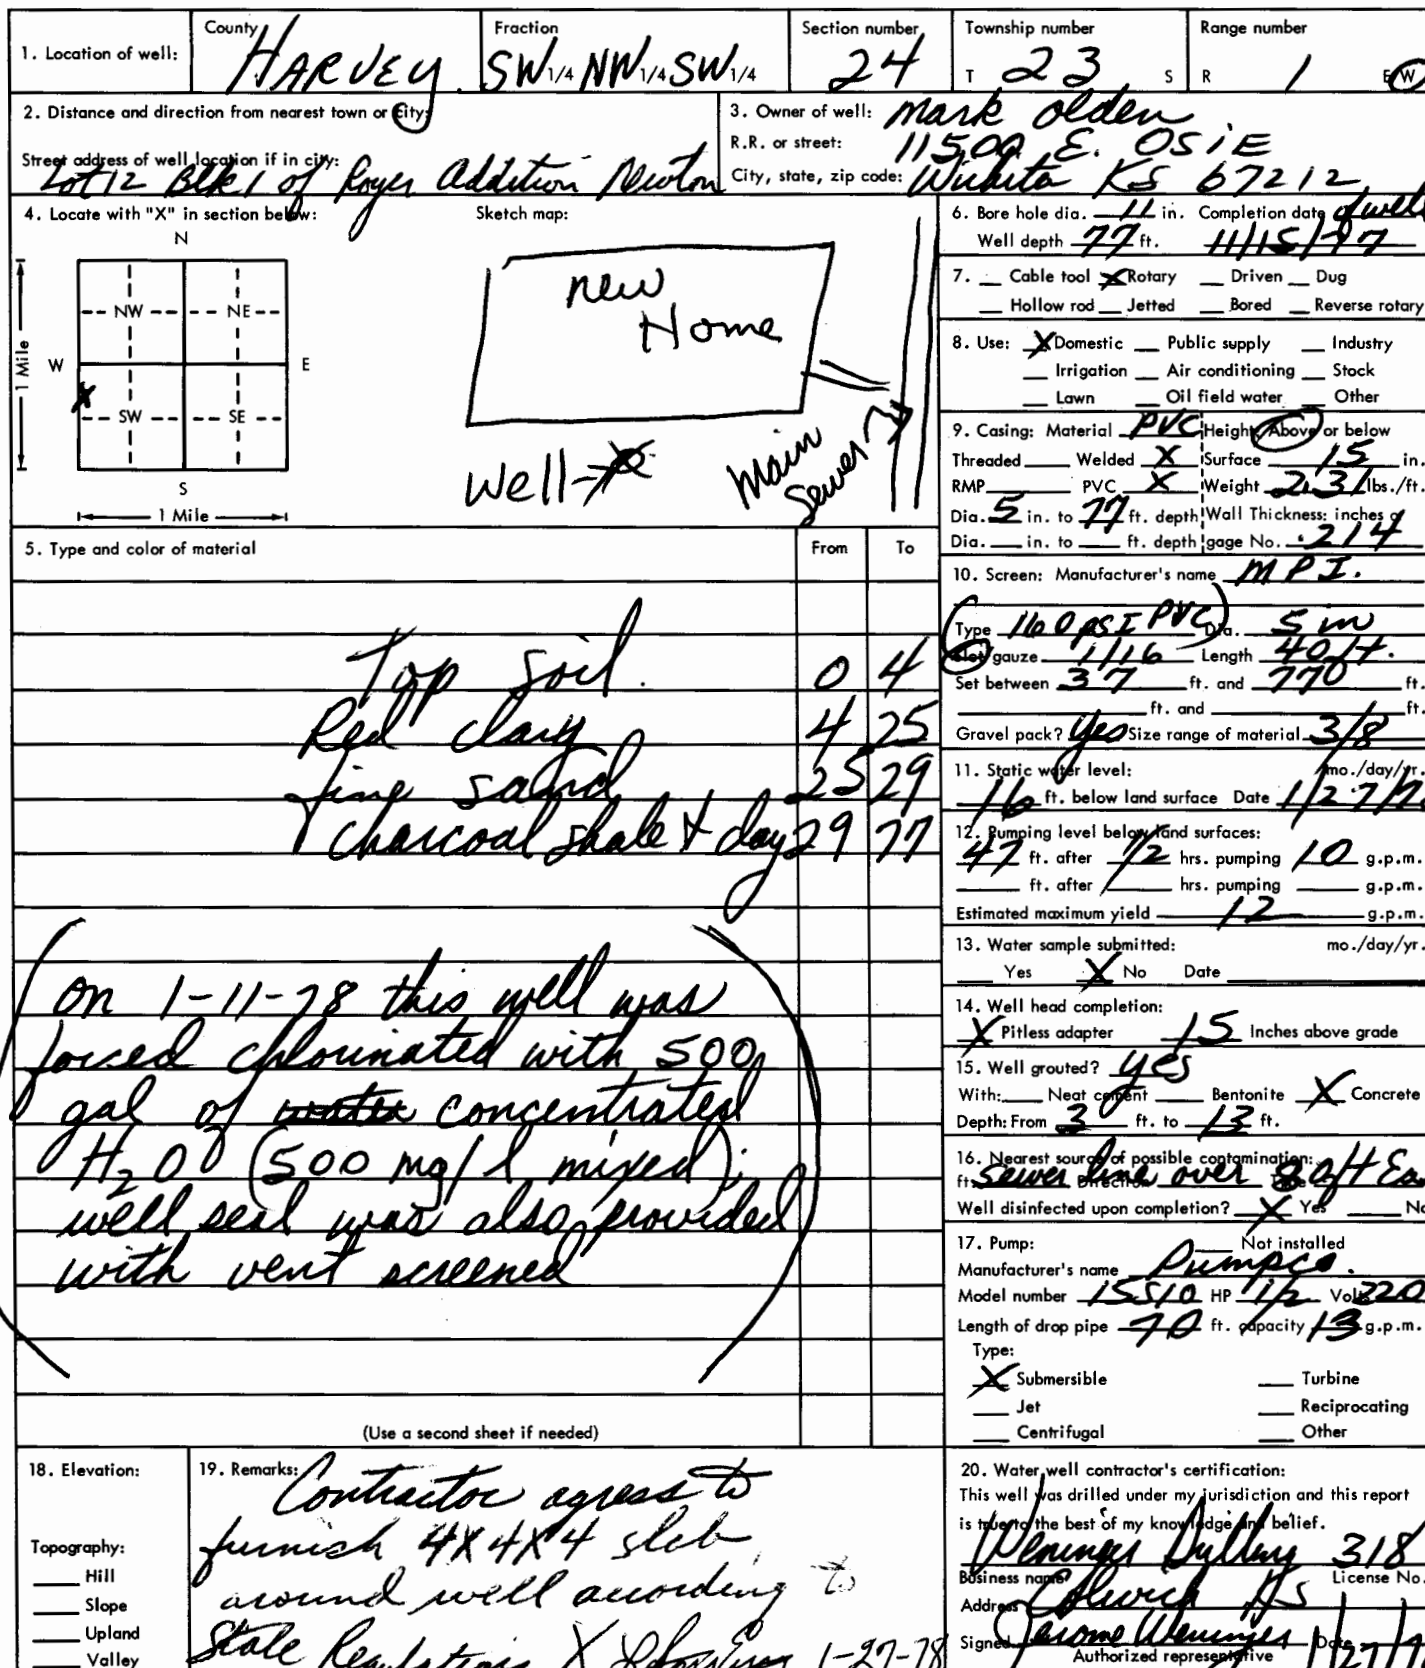 1. Location of well: County HARVEY Fraction SW 1/4 NW 1/4 SW 1/4 Section number 24 Township number T 23 S Range number R 1 E W
2. Distance and direction from nearest town or city:
Street address of well location if in city:
Lot 12 Blk 1 of Royer Addition Newton
3. Owner of well: Mark Olden
R.R. or street: 11500 E. OSiE
City, state, zip code: Wichita KS 67212
4. Locate with "X" in section below:
N
NW NE
W E
X
SW SE
S
1 Mile
1 Mile
Sketch map:
new
Home
Well
Main
Sewer
5. Type and color of material From To
Top soil. 0 4
Red clay 4 25
fine sand 25 29
charcoal shale + clay 29 77
On 1-11-78 this well was
forced chlorinated with 500
gal of water concentrated
H2O (500 mg/l mixed);
well seal was also provided
with vent screened
(Use a second sheet if needed)
6. Bore hole dia. 11 in. Completion date of well
Well depth 77 ft. 11/15/77
7. Cable tool X Rotary Driven Dug
Hollow rod Jetted Bored Reverse rotary
8. Use: X Domestic Public supply Industry
Irrigation Air conditioning Stock
Lawn Oil field water Other
9. Casing: Material PVC Height: Above or below
Threaded Welded X Surface 15 in.
RMP PVC X Weight 2.31 lbs./ft.
Dia. 5 in. to 77 ft. depth Wall Thickness: inches or
Dia. in. to ft. depth gage No. .214
10. Screen: Manufacturer's name M P I.
Type 160 PSI PVC Dia. 5 in
Slot gauze 1/16 Length 40 ft.
Set between 37 ft. and 770 ft.
ft. and ft.
Gravel pack? Yes Size range of material 3/8
11. Static water level: mo./day/yr.
16 ft. below land surface Date 1/27/7
12. Pumping level below land surfaces:
47 ft. after 1/2 hrs. pumping 10 g.p.m.
ft. after hrs. pumping g.p.m.
Estimated maximum yield 12 g.p.m.
13. Water sample submitted: mo./day/yr.
Yes X No Date
14. Well head completion:
X Pitless adapter 15 Inches above grade
15. Well grouted? yes
With: Neat cement Bentonite X Concrete
Depth: From 3 ft. to 13 ft.
16. Nearest source of possible contamination:
ft. sewer line over 80 ft Ea
Direction
Well disinfected upon completion? X Yes No
17. Pump: Not installed
Manufacturer's name Pumpco.
Model number 15S10 HP 1/2 Volts 220
Length of drop pipe 70 ft. capacity 13 g.p.m.
Type:
X Submersible Turbine
Jet Reciprocating
Centrifugal Other
18. Elevation:
Topography:
Hill
Slope
Upland
Valley
19. Remarks: Contractor agress to
furnish 4X4X4 sleb
around well acuording to
State Regulations X 1-27-78
20. Water well contractor's certification:
This well was drilled under my jurisdiction and this report
is true to the best of my knowledge and belief.
Weninger Drilling 318
Business name License No.
Address Colwich KS
Signed Jerome Weninger Date 1/27/7
Authorized representative